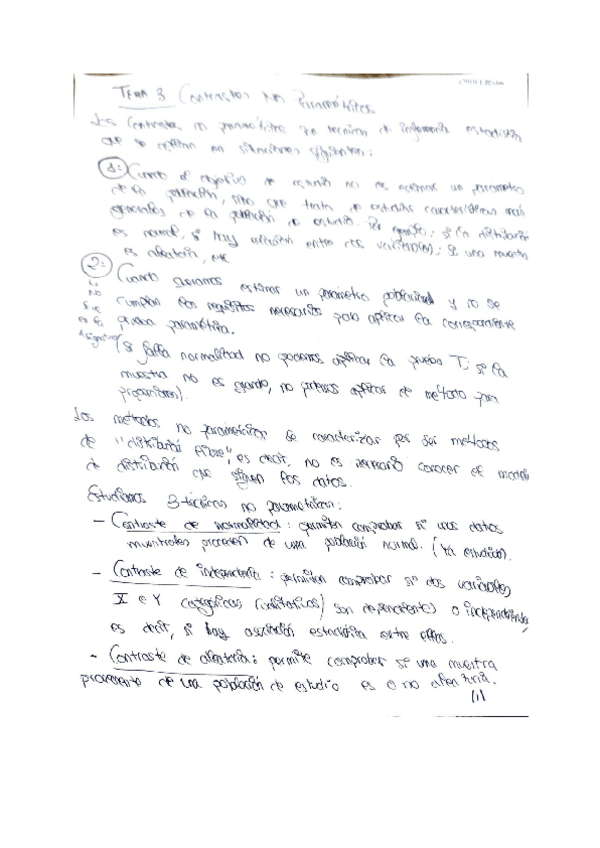 TEMA 3 Contrastes No Paramétricos
Los Contrastes no paramétricos son técnicas de inferencia estadística
que se en situaciones siguientes:
1: Cuando el objetivo de no es estimar un parámetro
de la población, sino que trata de estudiar características más
generales de la población de estudio. Por ejemplo: si la distribución
es normal, si hay relación entre dos variables; si una muestra
es aleatoria, etc
2: Cuando queramos estimar un parámetro poblacional y no se
cumplan los requisitos necesarios para aplicar la correspondiente
prueba paramétrica.
(Si falla normalidad no podemos aplicar la prueba T; si la
muestra no es grande, no podemos aplicar el método para
proporciones).
Los métodos no paramétricos se caracterizan por ser métodos
de "distribución libre", es decir, no es necesario conocer el modelo
de distribución que siguen los datos.
Estudiamos 3 técnicas no paramétricas:
- Contraste de normalidad: permiten comprobar si unos datos
muestrales proceden de una población normal. (Ya estudiado).
- Contraste de independencia: permiten comprobar si dos variables
X e Y categóricas (cualitativas) son dependientes o independientes
es decir, si hay asociación estadística entre ellas.
- Contraste de aleatoria: permite comprobar si una muestra
proveniente de una población de estudio es o no aleatoria.
(1)